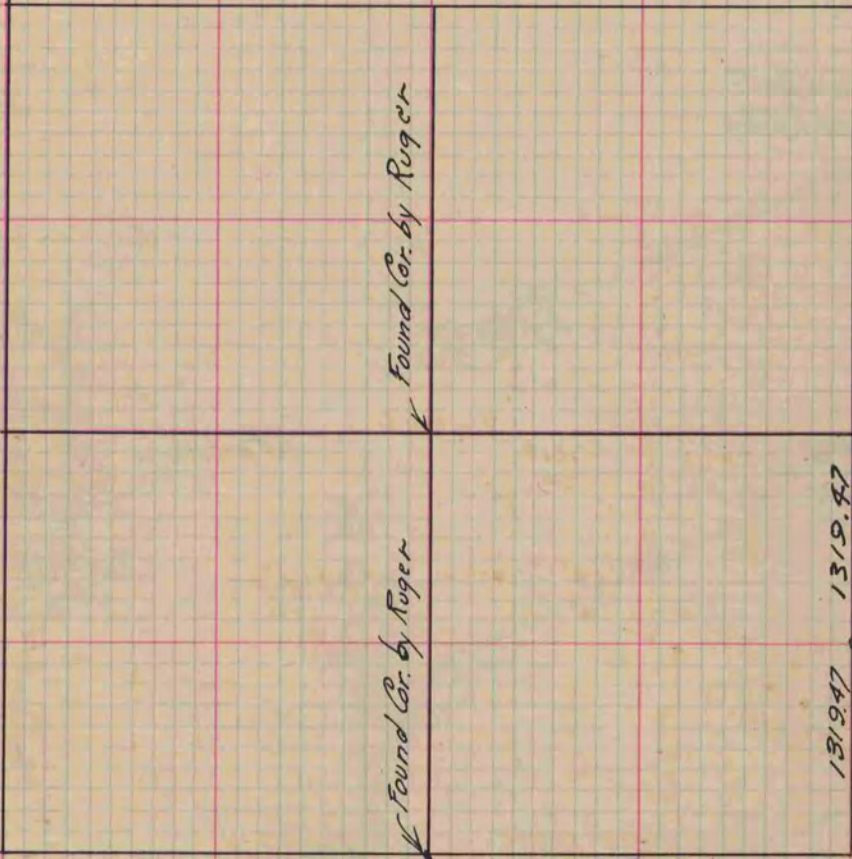 Found Cor. by Ruger
Found Cor. by Ruger
1319.47
1319.47